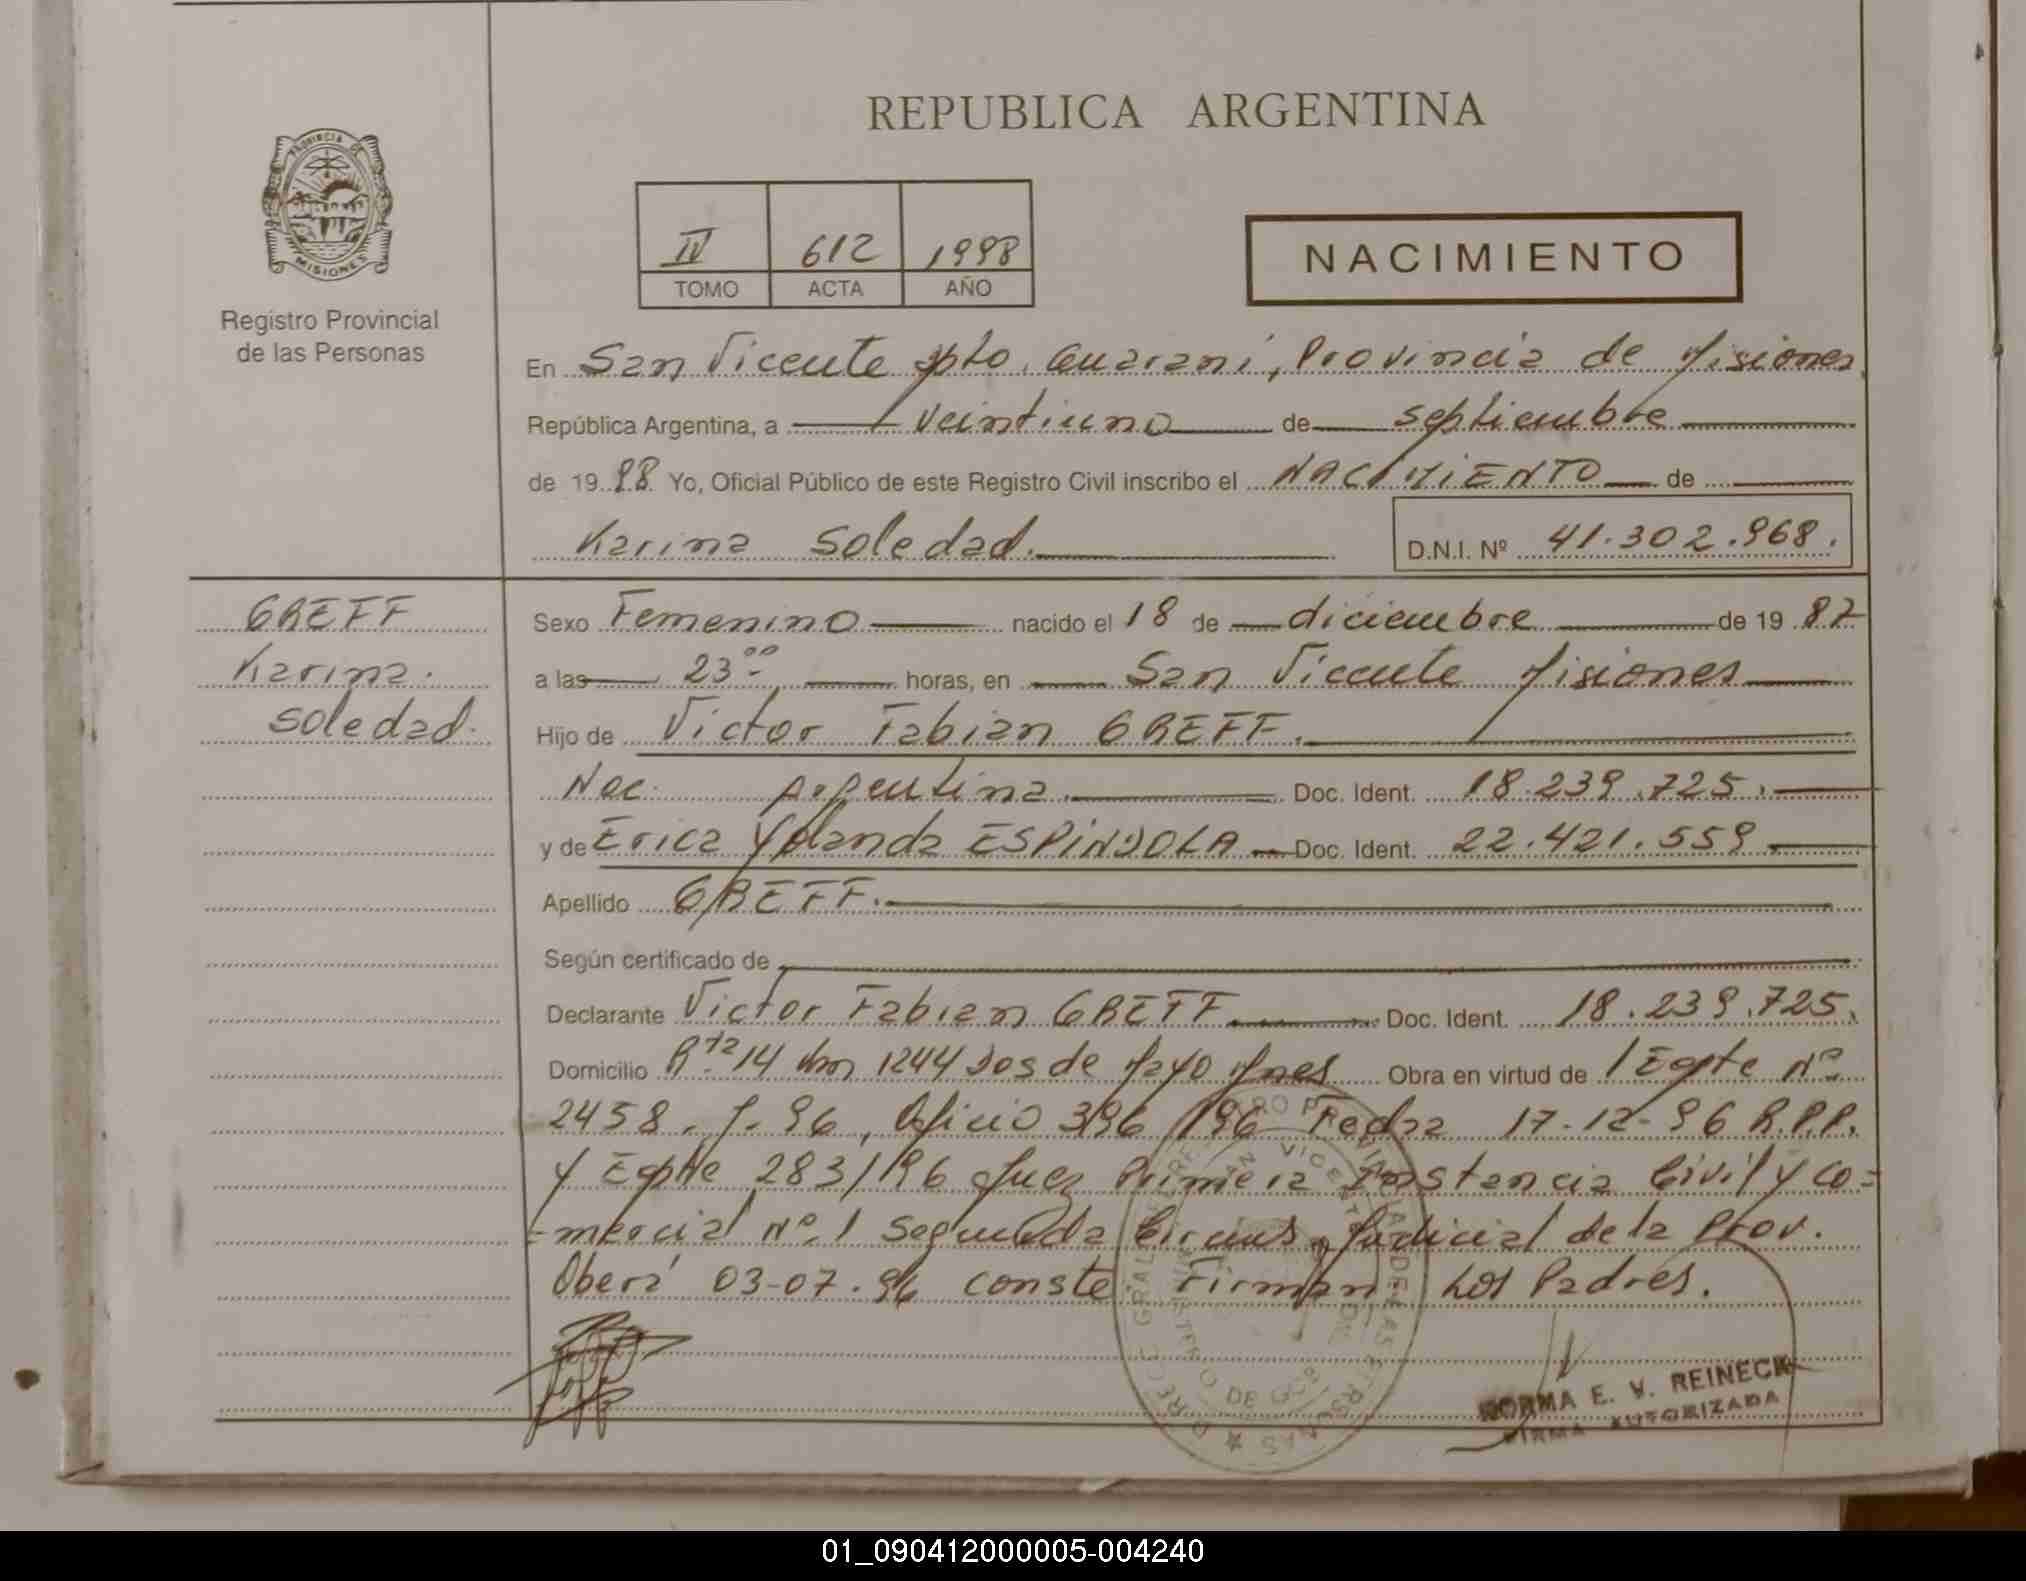 REPUBLICA ARGENTINA
PROVINCIA DE
MISIONES
Registro Provincial
de las Personas
IV 612 1998
TOMO ACTA AÑO
NACIMIENTO
En San Vicente Dpto. Guaraní, Provincia de Misiones
República Argentina, a veintiuno de septiembre
de 1998 Yo, Oficial Público de este Registro Civil inscribo el NACIMIENTO de
Karina Soledad. D.N.I. Nº 41.302.968.
GREFF
Karina.
Soledad.
Sexo Femenino nacido el 18 de diciembre de 1987
a las 23 00 horas, en San Vicente Misiones
Hijo de Victor Fabian GREFF.
Nac. Argentina. Doc. Ident. 18.239.725.
y de Erica Yolanda ESPINDOLA Doc. Ident. 22.421.559
Apellido GREFF.
Según certificado de
Declarante Victor Fabian GREFF Doc. Ident. 18.239.725.
Domicilio R ta 14 km 1244 Dos de Mayo Mnes Obra en virtud de Expte Nº
2458. 96, Oficio 396/96 Fecha 17-12-96 R.P.P.
y Expte 283/96 Juez Primera Instancia Civil y Co=
=mercial Nº 1 Segunda Circuns. Judicial de la Prov.
Oberá 03-07-96 conste Firman Los Padres.
NORMA E. W. REINECK
FIRMA AUTORIZADA
01_090412000005-004240